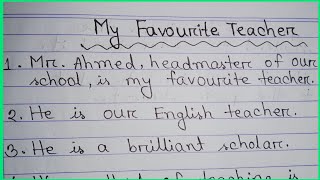 My Favourite Teacher
1. Mr. Ahmed, headmaster of our
school, is my favourite teacher.
2. He is our English teacher.
3. He is a brilliant scholar.
teaching is